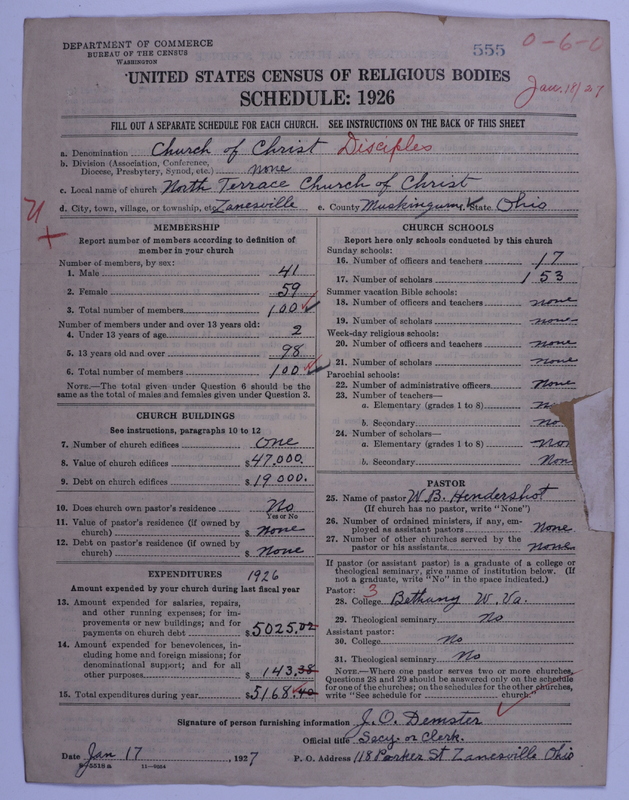 DEPARTMENT OF COMMERCE
BUREAU OF THE CENSUS
WASHINGTON
555
0-6-0
Jan. 18/27
UNITED STATES CENSUS OF RELIGIOUS BODIES
SCHEDULE: 1926
FILL OUT A SEPARATE SCHEDULE FOR EACH CHURCH. SEE INSTRUCTIONS ON THE BACK OF THIS SHEET
a. Denomination Church of Christ Disciples
b. Division (Association, Conference, Diocese, Presbytery, Synod, etc.) none
c. Local name of church North Terrace Church of Christ
d. City, town, village, or township, etc. Zanesville e. County Muskingum State Ohio
MEMBERSHIP
Report number of members according to definition of
member in your church
Number of members, by sex:
1. Male 41
2. Female 59
3. Total number of members 100
Number of members under and over 13 years old:
4. Under 13 years of age 2
5. 13 years old and over 98
6. Total number of members 100
NOTE.—The total given under Question 6 should be the
same as the total of males and females given under Question 3.
CHURCH BUILDINGS
See instructions, paragraphs 10 to 12
7. Number of church edifices One
8. Value of church edifices $47.000.
9. Debt on church edifices $19000.
10. Does church own pastor's residence No
Yes or No
11. Value of pastor's residence (if owned by
church) $ none
12. Debt on pastor's residence (if owned by
church) $ None
EXPENDITURES 1926
Amount expended by your church during last fiscal year
13. Amount expended for salaries, repairs,
and other running expenses; for im-
provements or new buildings; and for
payments on church debt $5025.02
14. Amount expended for benevolences, in-
cluding home and foreign missions; for
denominational support; and for all
other purposes $143.38
15. Total expenditures during year $5168.40
CHURCH SCHOOLS
Report here only schools conducted by this church
Sunday schools:
16. Number of officers and teachers 17
17. Number of scholars 153
Summer vacation Bible schools:
18. Number of officers and teachers none
19. Number of scholars none
Week-day religious schools:
20. Number of officers and teachers none
21. Number of scholars none
Parochial schools:
22. Number of administrative officers None
23. Number of teachers—
a. Elementary (grades 1 to 8)
b. Secondary
24. Number of scholars—
a. Elementary (grades 1 to 8)
b. Secondary Non
PASTOR
25. Name of pastor W. B. Hendershot
(If church has no pastor, write "None")
26. Number of ordained ministers, if any, em-
ployed as assistant pastors None
27. Number of other churches served by the
pastor or his assistants None
If pastor (or assistant pastor) is a graduate of a college or
theological seminary, give name of institution below. (If
not a graduate, write "No" in the space indicated.)
Pastor: 3
28. College Bethany W. Va.
29. Theological seminary No
Assistant pastor:
30. College No
31. Theological seminary No
NOTE.—Where one pastor serves two or more churches,
Questions 28 and 29 should be answered only on the schedule
for one of the churches; on the schedules for the other churches,
write "See schedule for church."
Signature of person furnishing information J. O. Demster
Official title Secy. or Clerk.
Date Jan 17, 1927 P. O. Address 118 Parker St Zanesville Ohio
11—6054